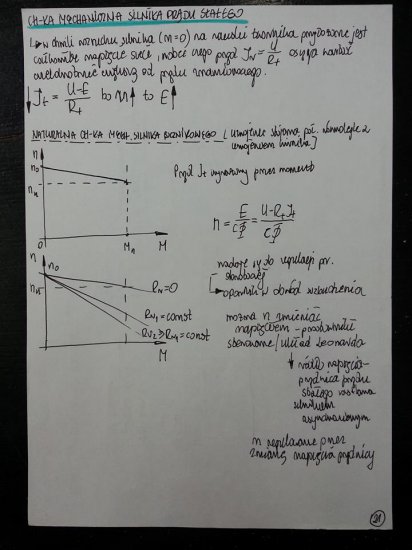 CH-KA MECHANICZNA SILNIKA PRĄDU STAŁEGO
w chwili rozruchu silnika (n=0) na zaciski twornika przyłożone jest
całkowite napięcie sieci, wobec czego prąd I_N = U/R_t osiąga wartość
wielokrotnie większą od prądu znamionowego.
↓I_t = U-E/R_t bo n↑ to E↑
NATURALNA CH-KA MECH. SILNIKA BOCZNIKOWEGO [uzwojenie stojana poł. równolegle z
uzwojeniem wirnika]
n
n_0
n_N
0
M_n
M
Prąd I_t wymuszony przez moment
n = E/cΦ = U-R_t I_t/cΦ
n
n_0
n_N
R_W=0
R_W1=const
R_W2≥R_W1=const
M
nadaje się do regulacji pr.
obrotowej
opornik w obwód wzbudzenia
można n zmieniać
napięciem - prostowniki
sterowane/układ Leonarda
↓
źródło napięcia-
prądnica prądu
stałego
silnikiem
asynchronicznym
n regulowane przez
zmianę napięcia prądnicy
21